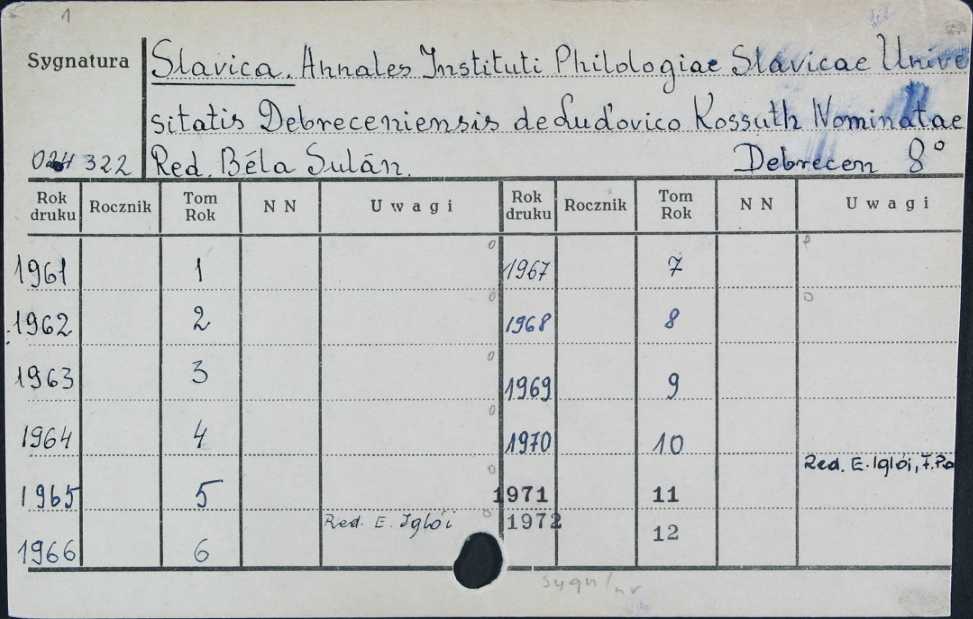 1
Sygnatura
Slavica. Annales Instituti Philologiae Slavicae Unive
sitatis Debreceniensis de Ludovico Kossuth Nominatae
322 Red. Béla Sulán. Debrecen 8°
Rok druku Rocznik Tom Rok NN Uwagi Rok druku Rocznik Tom Rok NN Uwagi
1961 1 1967 7
1962 2 1968 8
1963 3 1969 9
1964 4 1970 10
Red. E. Iglói, F. Pa
1965 5 1971 11
Red. E. Iglói 1972 12
1966 6
sygn/nr